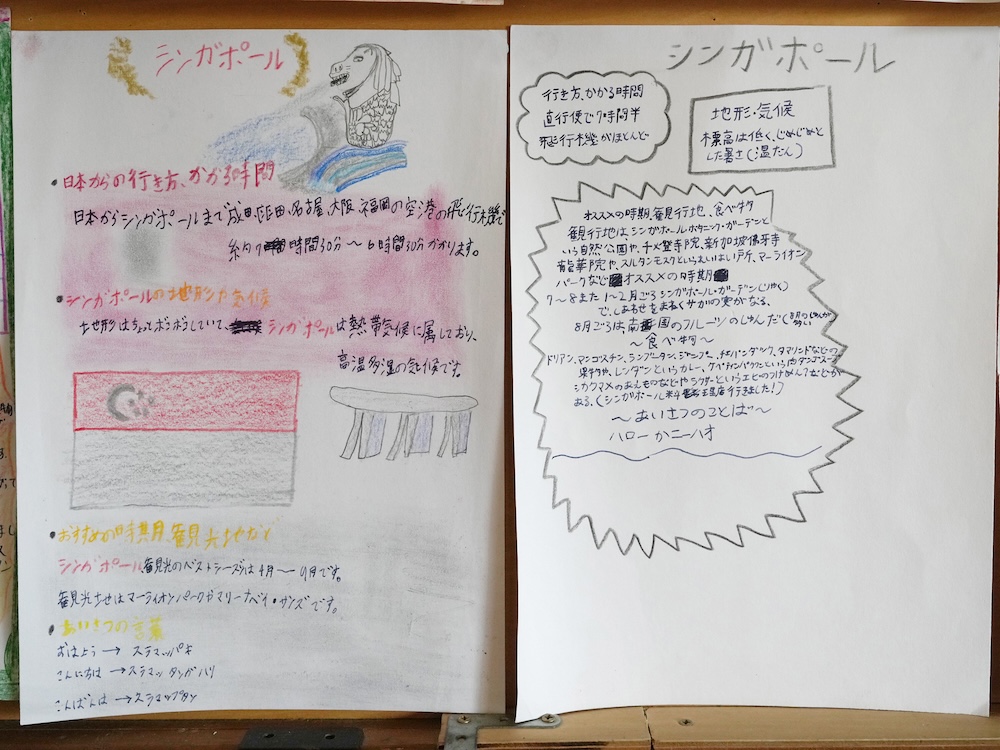 シンガポール
・日本からの行き方、かかる時間
日本からシンガポールまで成田、羽田、名古屋、大阪、福岡の空港の飛行機で
約7時間30分〜6時間30分かかります。
・シンガポールの地形や気候
土地形はちょっとボコボコしていて、シンガポールは熱帯気候に属しており、
高温多湿の気候です。
・おすすめの時期、観光地など
シンガポール観光のベストシーズンは4月〜9月です。
観光地はマーライオンパークやマリーナベイ・サンズです。
・あいさつの言葉
おはよう→スラマッパギ
こんにちは→スラマッタンガハリ
こんばんは→スラマップタン
シンガポール
行き方、かかる時間
直行便で7時間半
飛行機がほとんど
地形・気候
標高は低く、じめじめと
した暑さ(温だん)
オススメの時期、観行地、食べ物
観行地は、シンガポールボタニック・ガーデンと
いう自然公園や、チメ登寺院、新加坡佛牙寺
龍華院や、スルタンモスクといううらない戸所、マーライオン
パークなど オススメの時期
7〜8また1〜2月ごろシンガポール・ガーデン
で、しあわせをまねくサガの実がなる、
8月ごろは南国のフルーツのしゅんだ
〜食べ物〜
ドリアン、マンゴスチン、ランブータン、タマリンドなどの
果物や、レンダンというカレー、
シカクマメのあえものなどやラクサーというエビのつけめんなどが
ある、(シンガポール料理店行きました!)
〜あいさつのことば〜
ハローかニーハオ